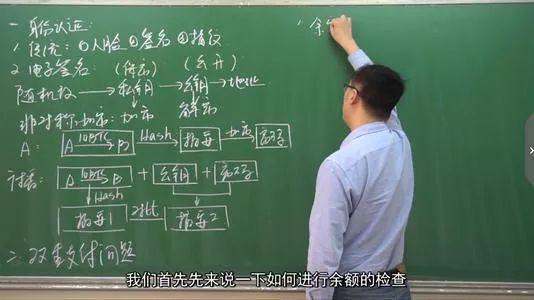 一 身份认证:
1. 传统: ①人脸 ②签名 ③指纹
2. 电子签名: (保密) (公开)
随机数 → 私钥 → 公钥 → 地址
非对称加密: 加密 解密
A: A 10BTC→ B Hash→ 摘要 加密→ 密码
广播: A 10BTC→ B + 公钥 + 密码
Hash
摘要1 对比 摘要2
二 双重支付问题
1. 余
我们首先先来说一下如何进行余额的检查